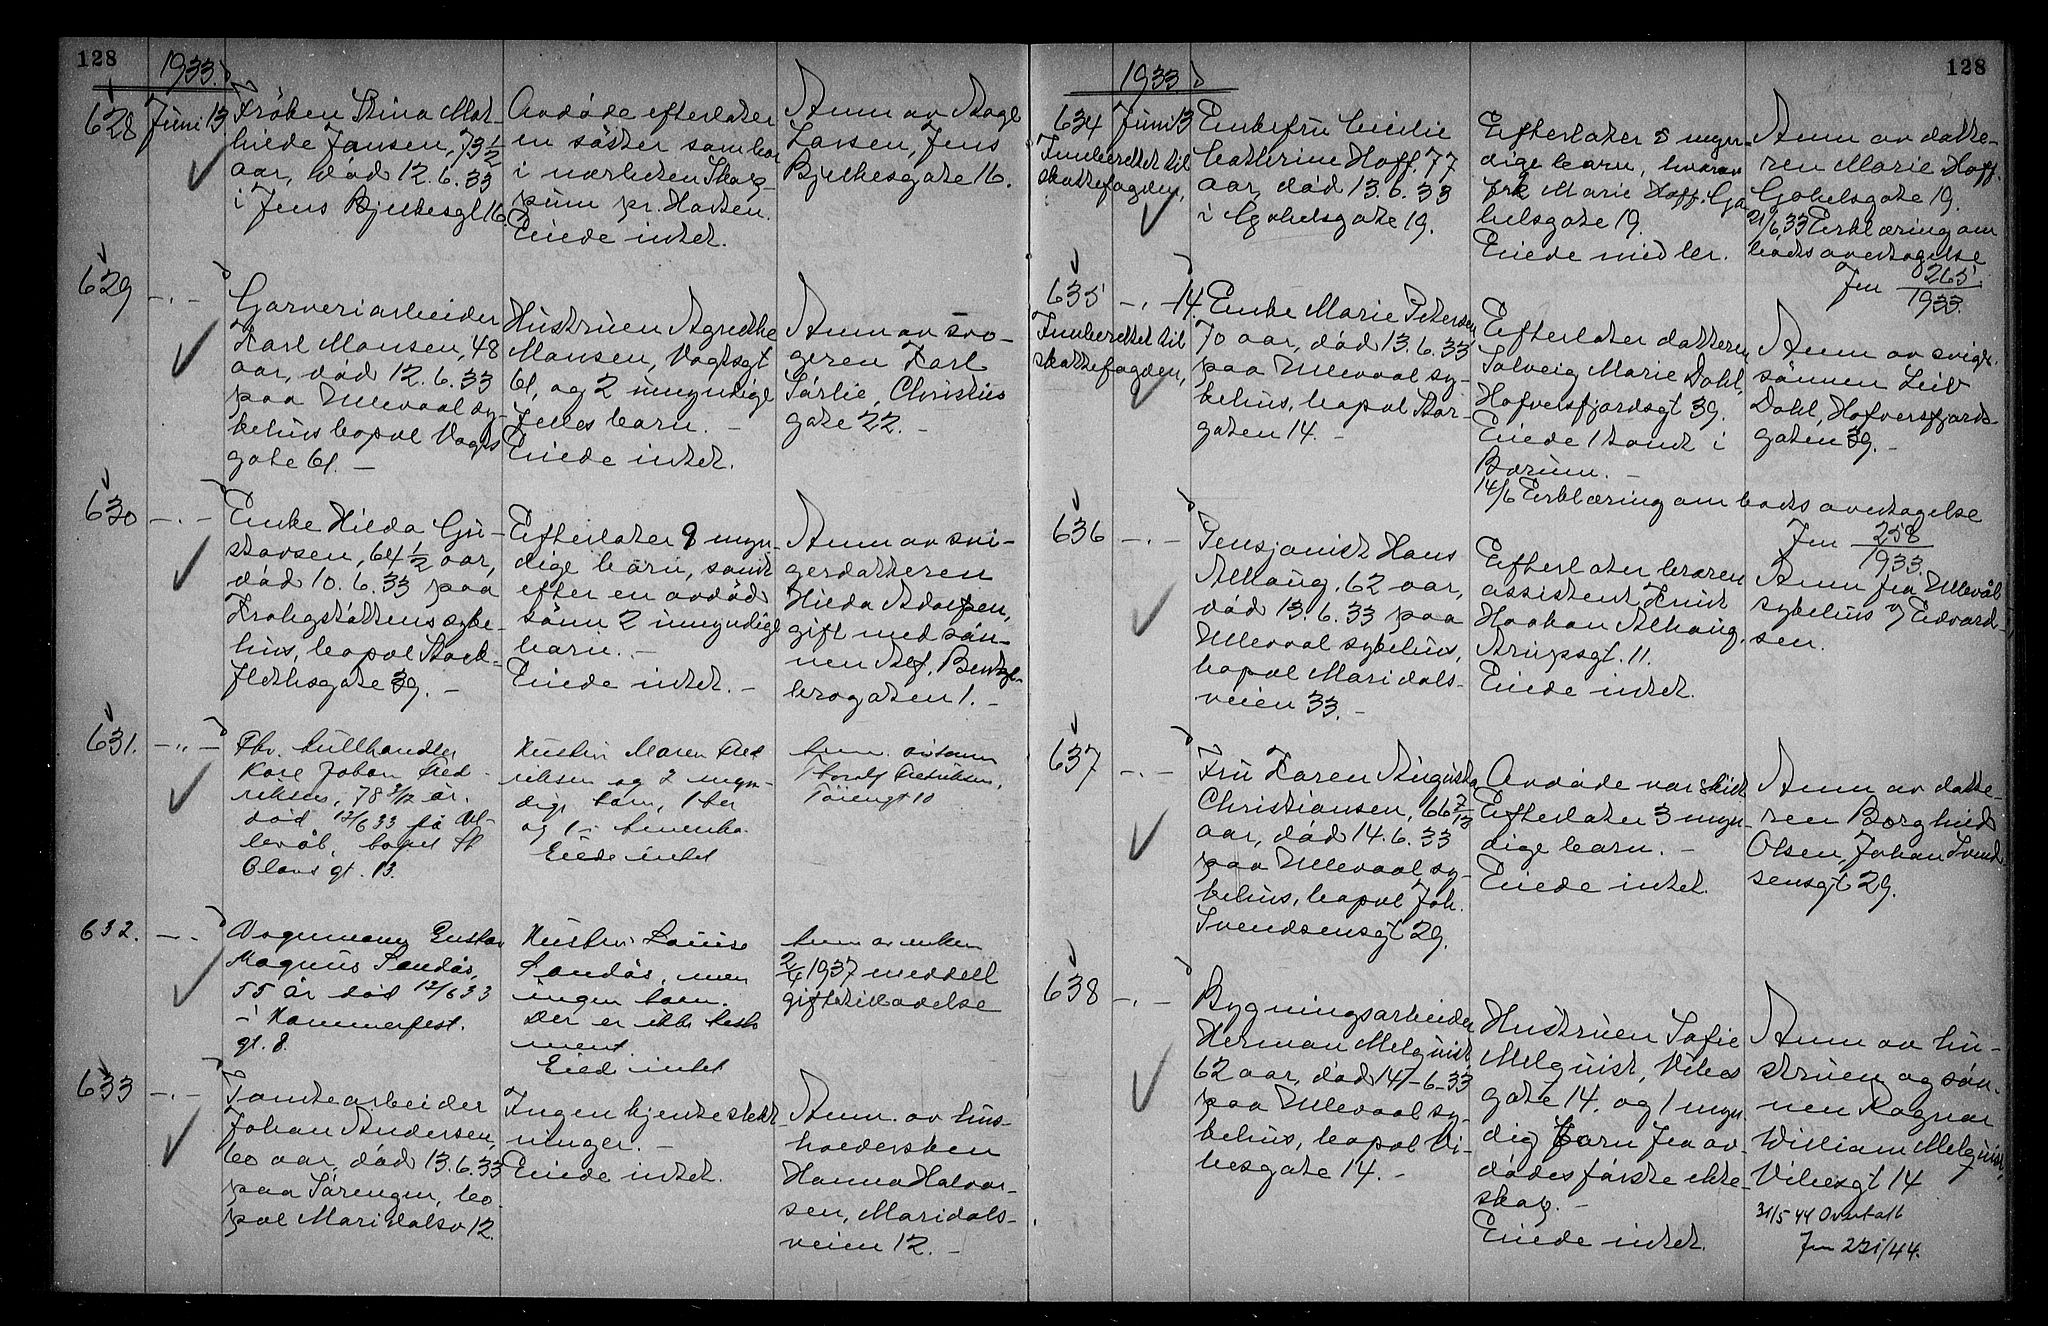 128
1933.
628 Juni 13
Fröken Stina Mat-
hilde Jansen, 73 1/2
aar, död 12.6.33
i Jens Bjelkesgt 16.
Avdöde efterlater
en söster som bor
i nærheten Skop-
pum pr. Horten.
Eiede intet.
Anm av Aage
Larsen, Jens
Bjelkesgate 16.
629 -.-
Garveriarbeider
Karl Mansen, 48
aar, död 12.6.33
paa Ullevaal sy-
kehus bopæl Vogts
gate 61. -
Hustruen Agnethe
Mansen, Vogtsgt
61, og 2 umyndige
felles barn. -
Eiede intet.
Anm av svo-
geren Karl
Sörlie, Christies
gate 22. -
630 -.-
Enke Hilda Gu-
stavsen, 64 1/2 aar,
död 10.6.33 paa
Krohgstöttens syke-
hus, bopæl Stock-
flethsgate 39. -
Efterlater 9 myn-
dige barn, samt
efter en avdöd
sönn 2 umyndige
barn. -
Eiede intet. -
Anm av svi-
gerdatteren
Hilda Adolfsen,
gift med sön-
nen Alf, Bentse-
brogaten 1. -
631. -"-
Fhv. kullhandler
Karl Johan Fred-
riksen, 78 3/12 år.
död 12/6 33 på Ul-
levål, bopel St
Olavs gt. 13.
Hustru Maren Fred
riksen og 2 myn-
dige barn, 1 her
og 1 i Amerika.
Eiede intet
Anm. av sønn
Thoralf Fredriksen,
Töiengt 10
632. -.-
Vognmann Gustav
Magnus Sandås,
55 år død 12/6 33
i Hammerfest.
gt. 8.
Hustru Louise
Sandås, men
ingen barn.
Der er ikke testa
ment.
Eied intet
Anm av enken
2/4 1937 meddelt
gifte tilladelse
633 -.-
Tomtearbeider
Johan Andersen,
60 aar, död 13.6.33
paa Sörengen, bo
pæl Maridalsv 12.
Ingen kjente slekt
ninger. -
Eiede intet.
Anm. av hus-
holdersken
Hanna Halvor-
sen, Maridals-
veien 12. -
1933.
128
634 Juni 13
Innberettet til
skattefogden,
Enkefru Cecilie
Cathrine Hoff. 77
aar, död 13.6.33
i Gabelsgate 19.
Efterlater 5 myn-
dige barn, hvorav
frk Marie Hoff. Ga
belsgate 19.
Eiede midler.
Anm av datte-
ren Marie Hoff.
Gabelsgate 19.
21/6 33 Erklæring om
boets overtagelse
Jnr 265
1933.
635 -.- 14.
Innberettet til
skattefogden,
Enke Marie Petersen
70 aar, död 13.6.33
paa Ullevaal sy-
kehus, bopæl Stor-
gaten 14. -
Efterlater datteren
Solveig Marie Dahl,
Hafrsfjordsgt 39.
Eiede 1 tomt i
Bærum. -
14/6 Erklæring om boets overtagelse
Jnr 258
1933.
Anm av sviger-
sönnen Leif
Dahl, Hafrsfjords-
gaten 39. -
636 -.-
Pensjonist Hans
Alhaug, 62 aar,
död 13.6.33 paa
Ullevaal sykehus,
bopæl Maridals-
veien 33. -
Efterlater broren
assistent Knut
Haakon Alhaug,
Arupsgt. 11.
Eiede intet.
Anm fra Ullevål
sykehus v/ Edvard-
sen.
637 -.-
Fru Karen Augusta
Christiansen, 66 7/12
aar, död 14.6.33
paa Ullevaal sy-
kehus, bopæl Joh.
Svendsensgt 29.
Avdöde var skilt
Efterlater 3 myn-
dige barn. -
Eiede intet.
Anm av datte-
ren Borghild
Olsen, Johan Svend
sensgt 29.
638 -.-
Bygningsarbeider
Herman Melquist
62 aar, död 14-6-33
paa Ullevaal sy-
kehus, bopæl Vi-
besgate 14. -
Hustruen Sofie
Melquist, Vibes
gate 14. og 1 myn
dig barn fra av-
dödes förste ekte-
skap. -
Eiede intet.
Anm av hu-
struen og søn-
nen Ragnar
William Melquist,
Vibesgt 14
31/5 44 Overtatt
Jnr 221/44.